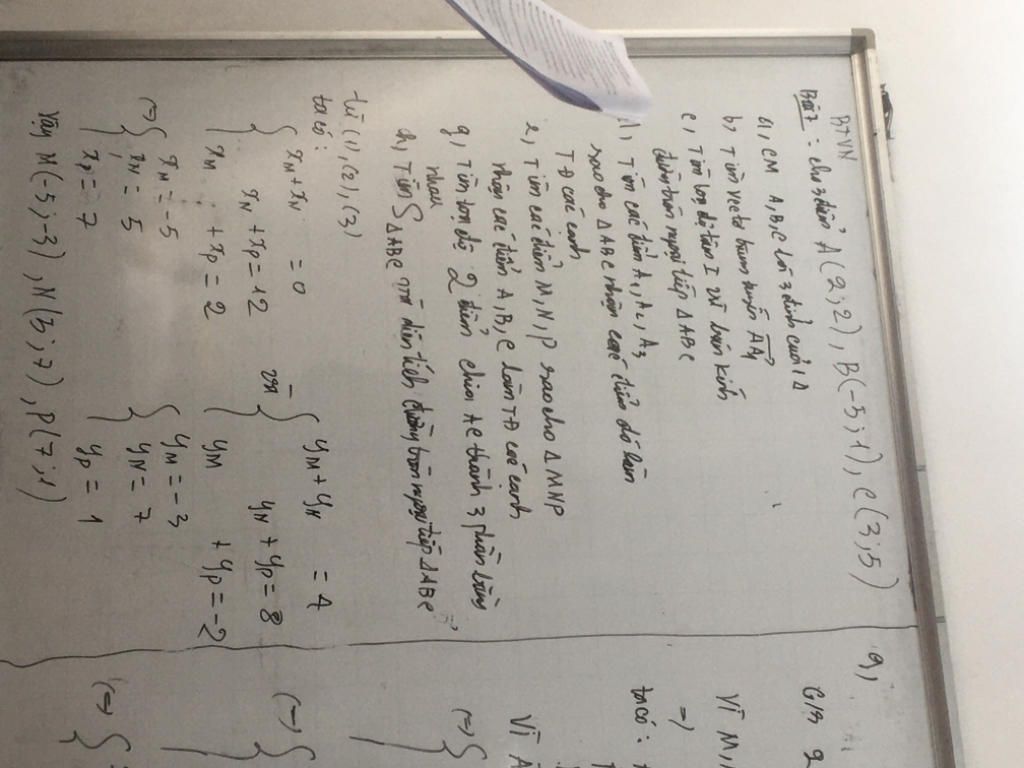 BTVN
Bài 7: cho 3 điểm A(2;2), B(-5;1), C(3;5)
a, CM A,B,C là 3 đỉnh của 1 Δ
b, Tìm vectơ trung tuyến AA₁
c, Tìm toạ độ tâm I và bán kính
đường tròn ngoại tiếp ΔABC
d, Tìm các điểm A₁, A₂, A₃
sao cho ΔABC nhận các điểm đó làm
TĐ các cạnh
e, Tìm các điểm M,N,P sao cho ΔMNP
nhận các điểm A,B,C làm TĐ các cạnh
g, Tìm toạ độ 2 điểm chia AC thành 3 phần bằng
nhau
h, Tìm S ΔABC diện tích đường tròn ngoại tiếp ΔABC
từ (1),(2),(3)
ta có:
{ x_M + x_N = 0 { y_M + y_N = 4
x_N + x_P = 12 và y_N + y_P = 8
x_M + x_P = 2 y_M + y_P = -2
(=) { x_M = -5 { y_M = -3
x_N = 5 y_N = 7
x_P = 7 y_P = 1
Vậy M(-5;-3), N(5;7), P(7;1)
9,
G/s 2
Vì M,
=)
ta có:
Vì A
(=) {
(=) {
(=) {